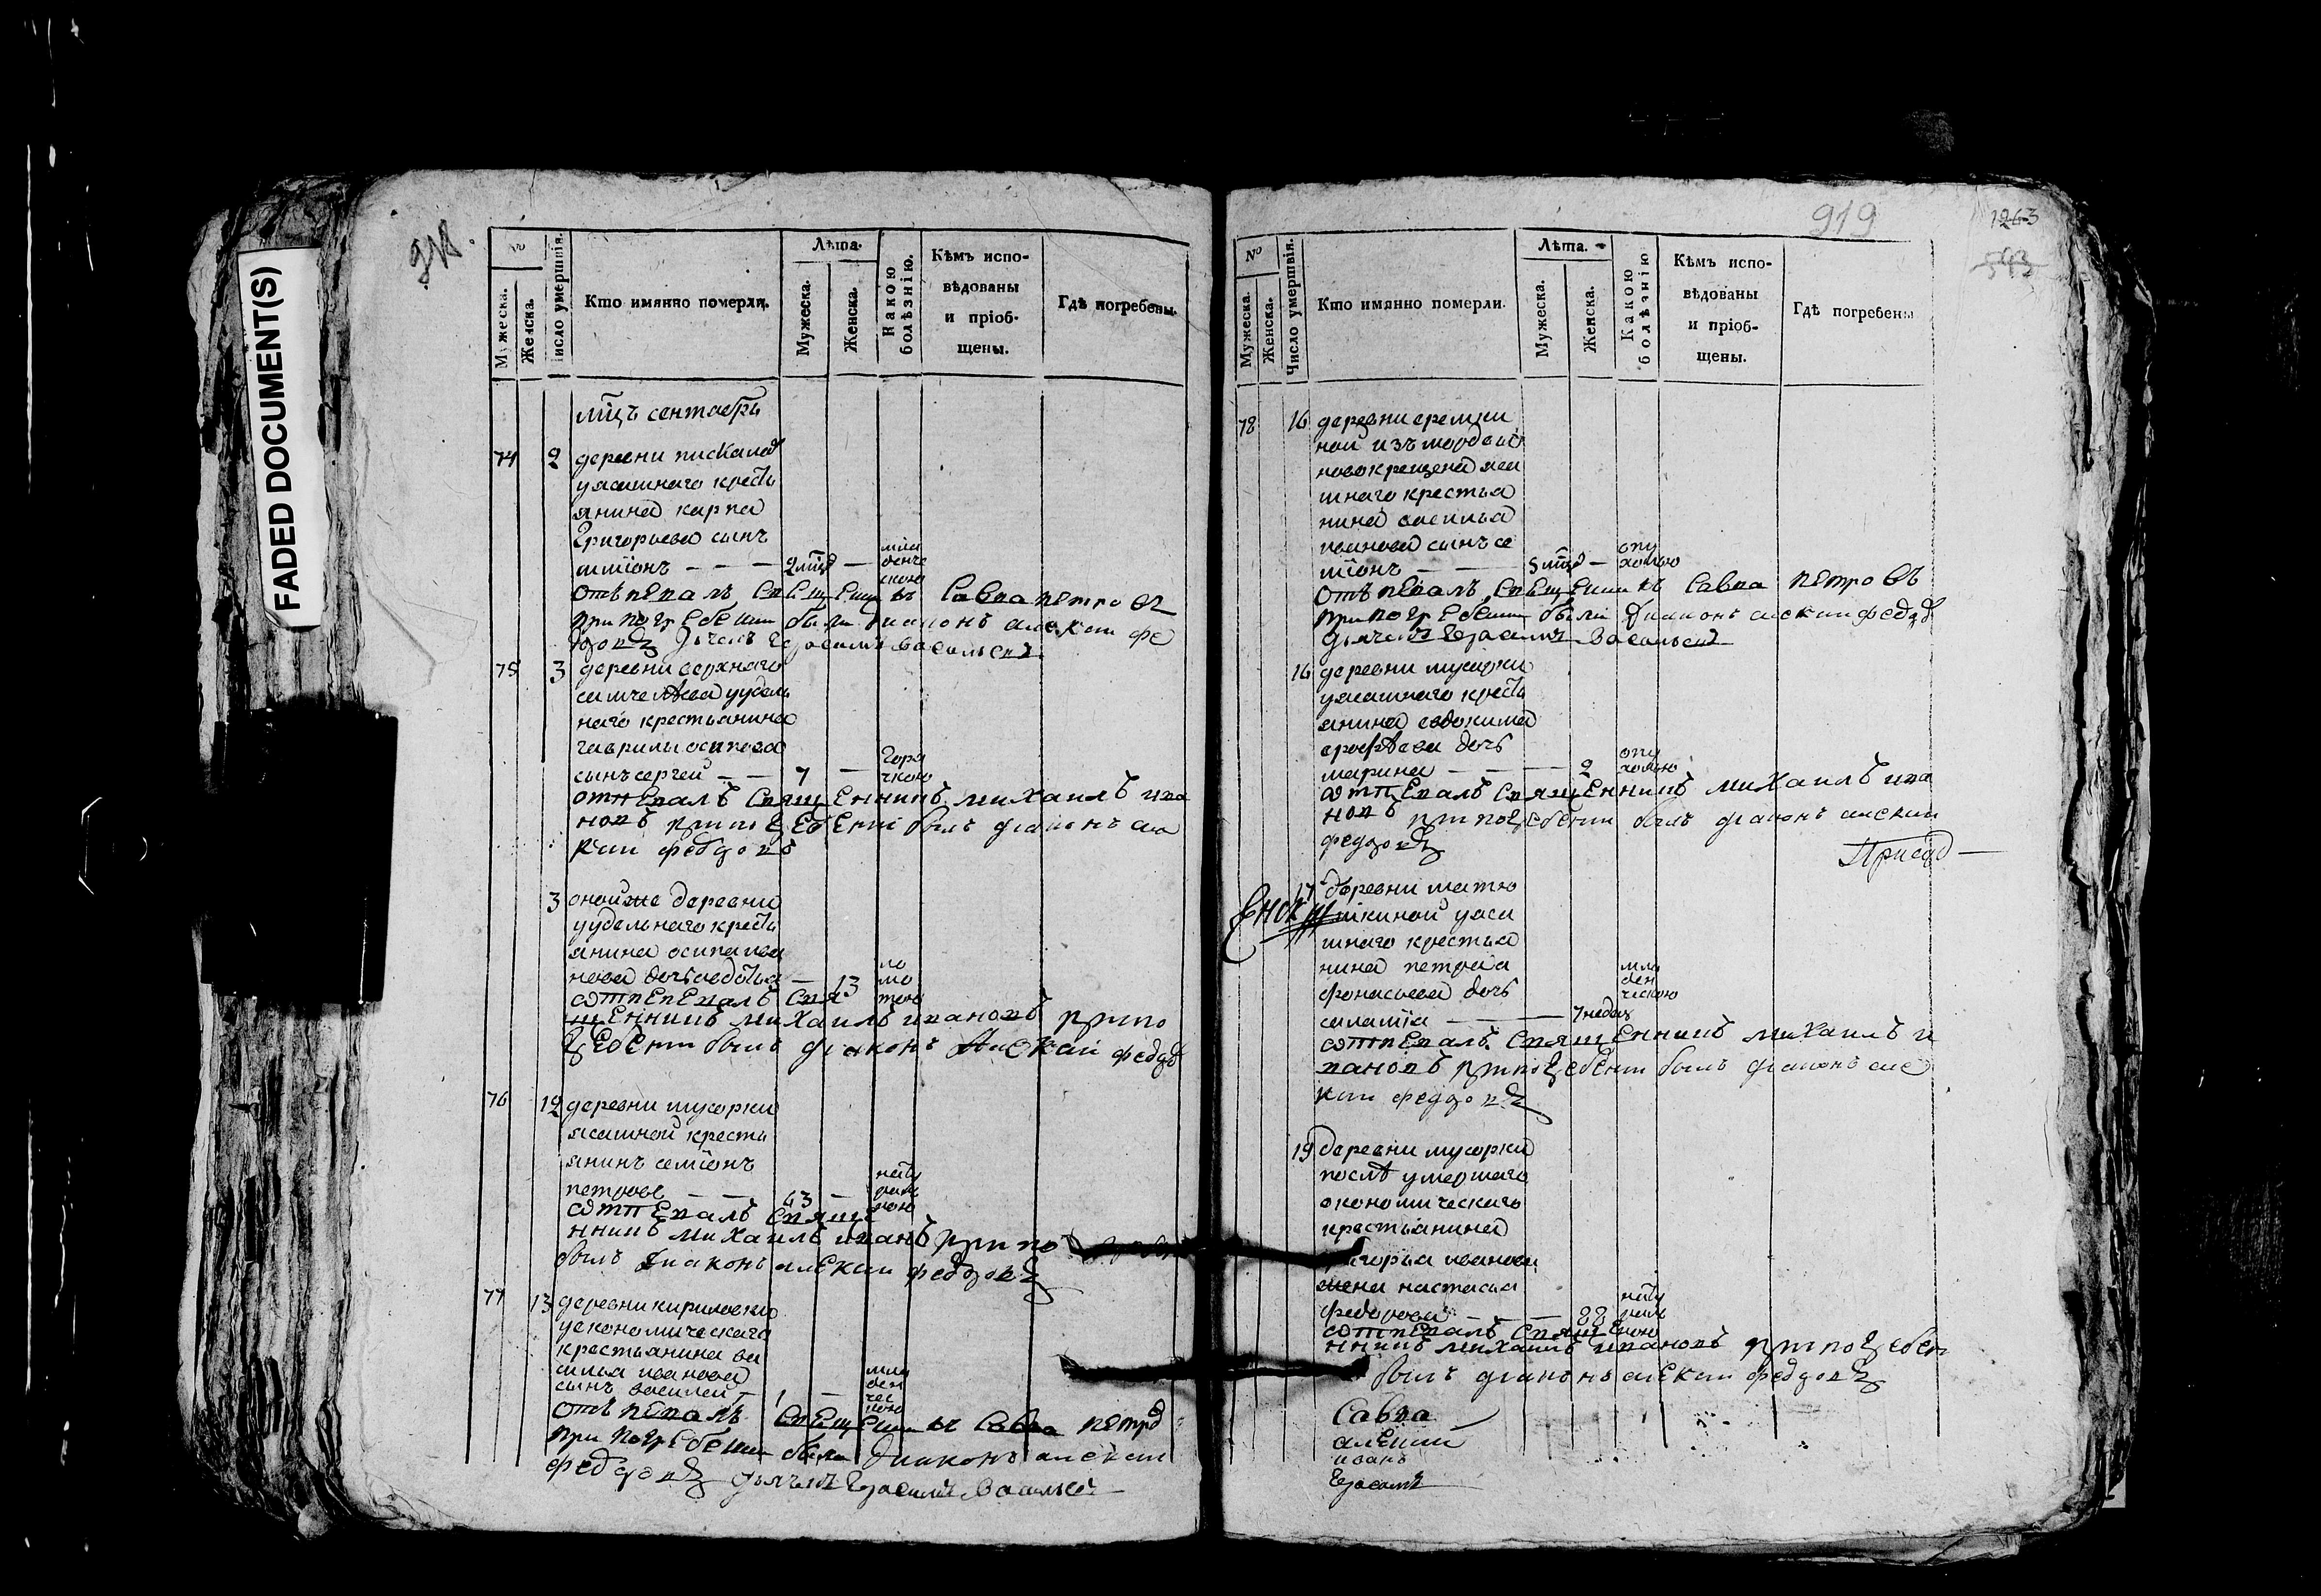 FADED DOCUMENT(S)
918.
№
Мужеска.
Женска.
Число умершвія.
Кто имянно померли.
Лѣта.
Мужеска.
Женска.
Какою болѣзнію.
Кѣмъ испо-
вѣдованы
и пріоб-
щены.
Гдѣ погребены.
мцъ сентабрь
74 2 деревни пискалы
уясашнаго кресть
янина карпа
Григорьева сынъ
симіонъ — — — 2 мцд — младенческою
отѣпѣвалъ Священникъ Савва петровъ
при погребении были диаконъ алекѣи фе
доровъ дьячекъ Герасимъ Васильевъ
75 3 деревни верхнаго
уудель
наго крестьянина
гаврилы осипова
сынъ сергей — — 7 — горячкою
отпевалъ священникъ михаилъ ива
новъ при погребении былъ диаконъ але
кѣи федоровъ
3 онойже деревни
уудельнаго кресть
янина осипа ива
нова дочь авдотья — 13 ломотою
отпевалъ свя
щенникъ михаилъ ивановъ при по
гребении былъ диаконъ Алекѣи федоровъ
76 12 деревни мусорки
ясашной кресть
янинъ семіонъ
петровъ — — 63 — натуральною
отпевалъ священ
нникъ михаилъ иванъ при по
былъ диаконъ алекѣи федоровъ
77 13 деревни кириловки
уекономическаго
крестьянина ва
силья иванова
сынъ василей — 1 — младенческою
отѣпѣвалъ Священникъ Савва петров
при погребении были диаконъ алекѣи
федоровъ дьячекъ Герасимъ Васильевъ
919
1263
543
№
Мужеска.
Женска.
Число умершвія.
Кто имянно померли.
Лѣта.
Мужеска.
Женска.
Какою болѣзнію
Кѣмъ испо-
вѣдованы
и пріоб-
щены.
Гдѣ погребены
78 16 деревни еремки
ной изъ мордвы
новокрещена яса
шнаго крестья
нина василья
иванова сынъ се
міонъ — — 5 мцд — опухолью
отѣпѣвалъ Священникъ Савва петровъ
при погребении были диаконъ алекѣи федоров
дьячекъ Герасимъ Васильевъ
16 деревни мусорки
уясашнаго кресть
янина евдокима
ерофѣева дочь
марина — — — 2 опухолью
отпевалъ священникъ михаилъ ива
новъ при погребении былъ диаконъ алекѣи
федоровъ
17 деревни матю
шкиной уяса
шнаго крестья
нина петра а
фонасьева дочь
— — 7 недел младенческою
отпевалъ священникъ михаилъ и
вановъ при погребении былъ диаконъ але
кѣи федоровъ
19 деревни мусорки
послѣ умершаго
экономическаго
крестьянина
григорья иванова
жена настасья
федорова — — 88 натуральною
отпевалъ священ
нникъ михаилъ ивановъ при погребен
былъ диаконъ алекѣи федоровъ
Савва
алекѣи
иванъ
Герасимъ